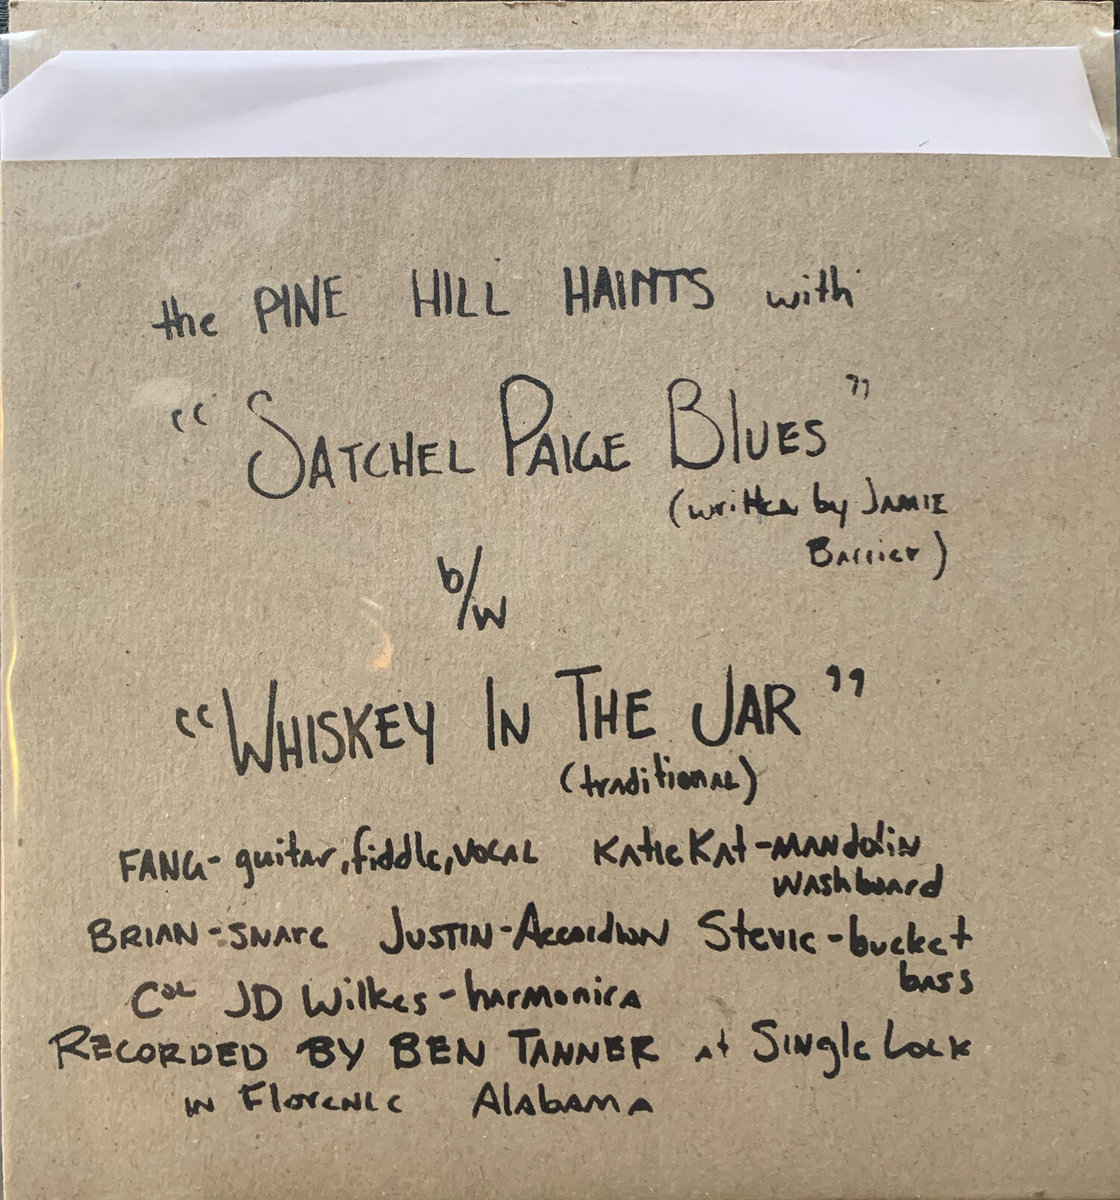 the PINE HILL HAINTS with
"SATCHEL PAIGE BLUES"
(written by JAMIE
Barrier)
b/w
"WHISKEY IN THE JAR"
(traditional)
FANG- guitar, fiddle, VOCAL KatieKat-MANdoliN
washboard
BRIAN-SNare JUSTIN-Accordion Stevie-bucket
bass
Col JD Wilkes-harmonica
RECORDED BY BEN TANNER at Single Lock
in Florence Alabama